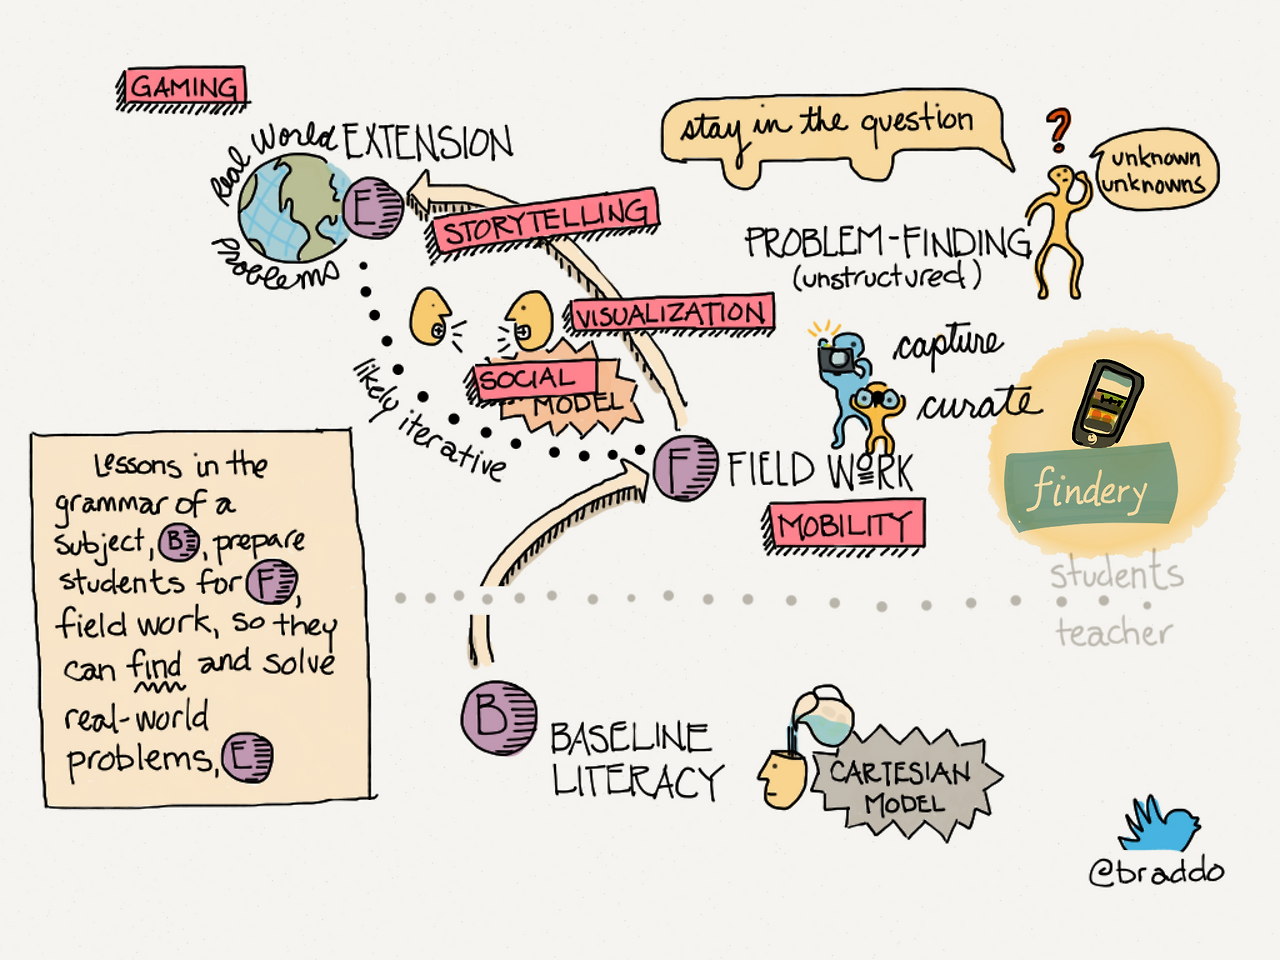 GAMING
Real World
EXTENSION
E
Problems
STORYTELLING
VISUALIZATION
SOCIAL
MODEL
likely iterative
stay in the question
?
unknown
unknowns
PROBLEM-FINDING
(unstructured)
capture
curate
F FIELD WORK
MOBILITY
findery
students
teacher
Lessons in the
grammar of a
subject, B, prepare
students for F,
field work, so they
can find and solve
real-world
problems, E
B BASELINE
LITERACY
CARTESIAN
MODEL
@braddo